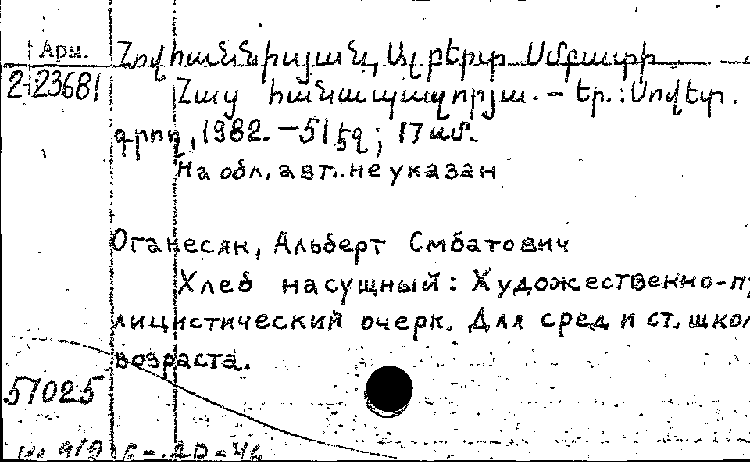 Арм. Հովհաննիսյան, Ալբերտ Սմբատի
2-23681 Հաց հանապազօրյա. – Եր.: Սովետ.
գրող, 1982. – 51 էջ; 17 սմ.
На обл. авт. не указан
Оганесян, Альберт Смбатович
Хлеб насущный: Художественно-пу
лицистический очерк. Для сред и ст. школ
возраста.
57025